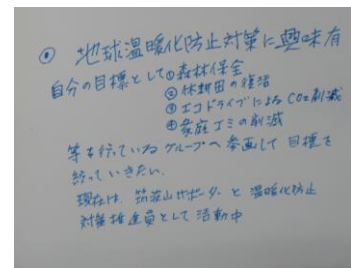 ◎ 地球温暖化防止対策に興味有
自分の目標として①森林保全
②休耕田の復活
③エコドライブによるCO2削減
④家庭ゴミの削減
等を行っているグループへ参画して目標を
絞っていきたい。
現在は、筑波山サポーターと温暖化防止
対策推進員として活動中